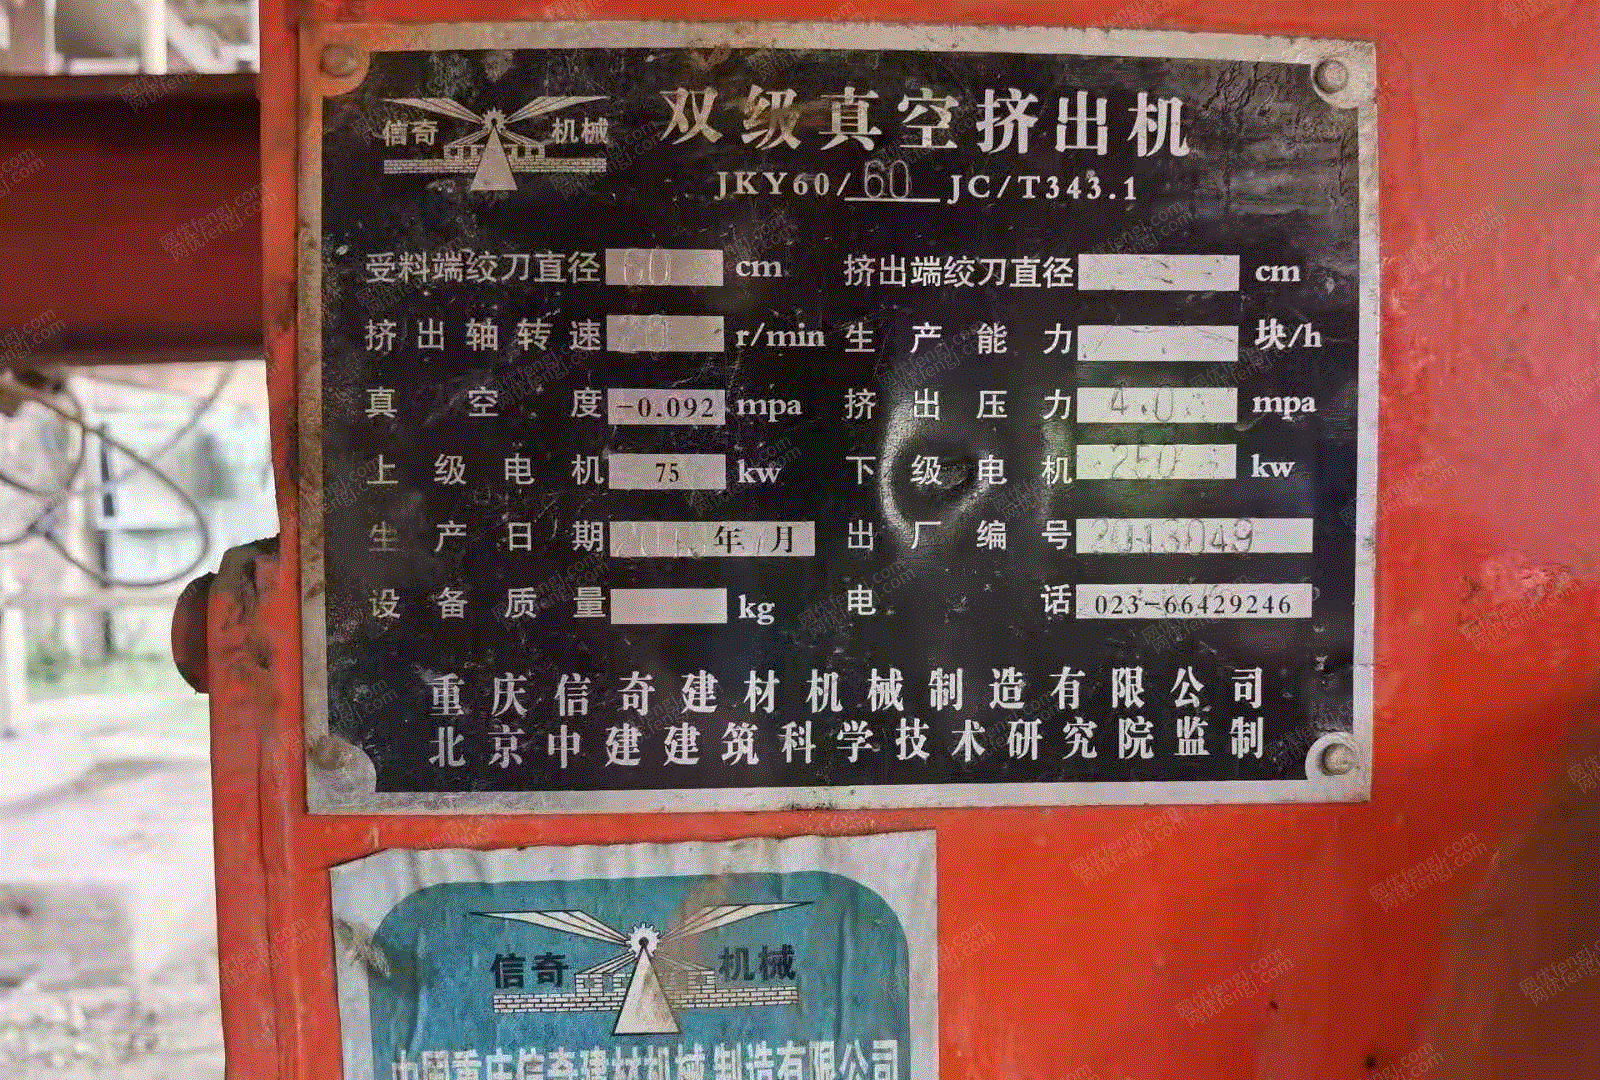 信奇 机械
双级真空挤出机
JKY60/60 JC/T343.1
受料端绞刀直径 60 cm 挤出端绞刀直径 cm
挤出轴转速 r/min 生产能力 块/h
真空度 -0.092 mpa 挤出压力 4.0 mpa
上级电机 75 kw 下级电机 250 kw
生产日期 年 月 出厂编号 2013049
设备质量 kg 电话 023-66429246
重庆信奇建材机械制造有限公司
北京中建建筑科学技术研究院监制
信奇 机械
中国重庆信奇建材机械制造有限公司